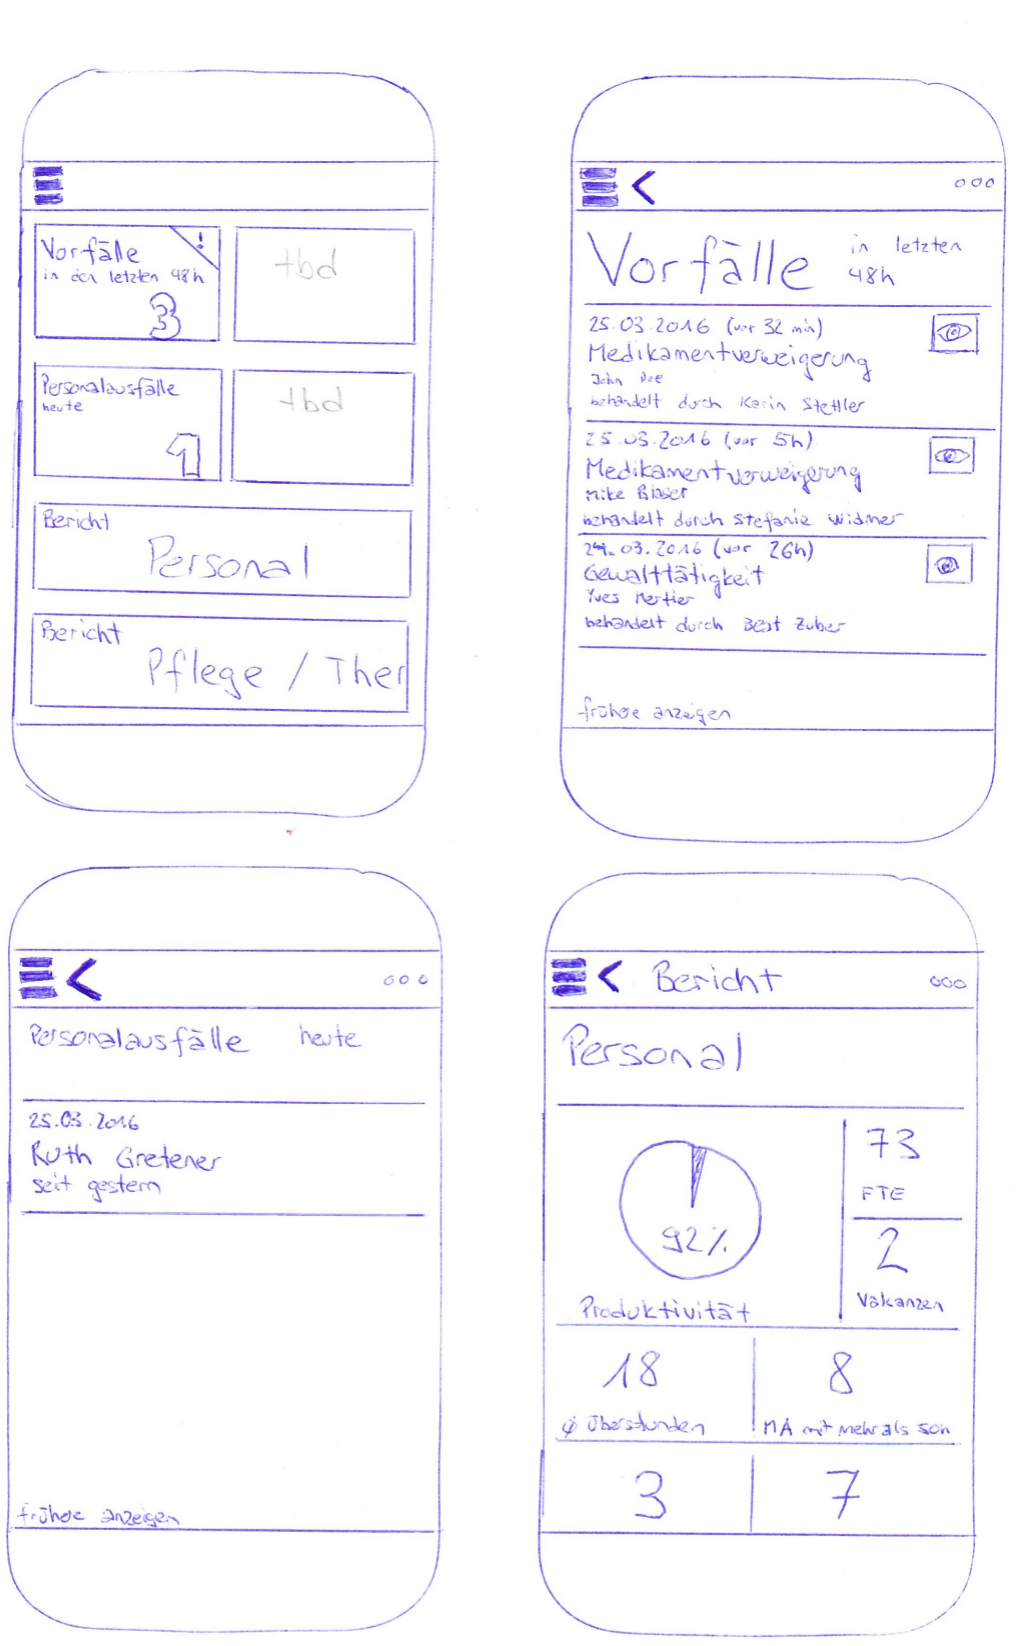 Vorfälle
!
in den letzten 48h
3
tbd
Personalausfälle
heute
1
tbd
Bericht
Personal
Bericht
Pflege / Ther
ooo
Vorfälle in letzten
48h
25.03.2016 (vor 32 min)
Medikamentverweigerung
John Doe
behandelt durch Karin Stettler
25.03.2016 (vor 5h)
Medikamentverweigerung
Mike Blaser
behandelt durch Stefanie Widmer
24.03.2016 (vor 26h)
Gewalttätigkeit
Yves Mertier
behandelt durch Beat Zuber
frühere anzeigen
ooo
Personalausfälle heute
25.03.2016
Ruth Gretener
seit gestern
frühere anzeigen
Bericht ooo
Personal
92%
Produktivität
73
FTE
2
Vakanzen
18
ø Überstunden
8
MA mit mehr als 50h
3
7